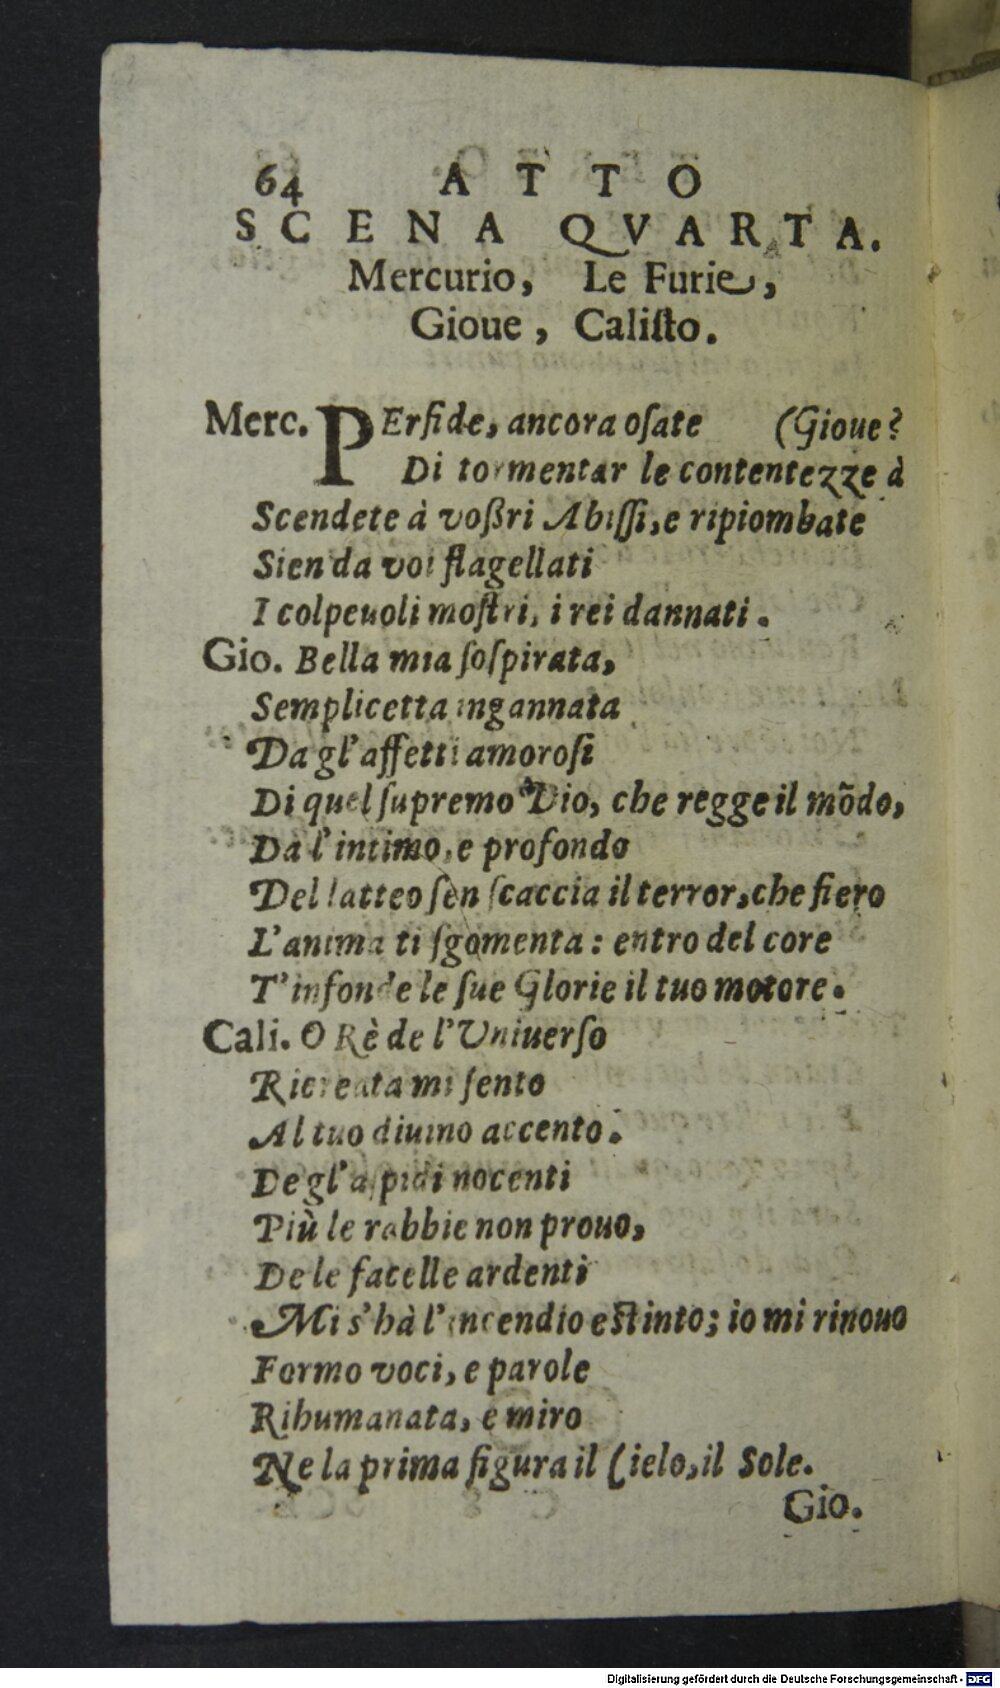 64 ATTO
SCENA QVARTA.
Mercurio, Le Furie,
Gioue, Caliſto.
Merc. PErfide, ancora oſate (Gioue?
Di tormentar le contentezze à
Scendete à voſtri Abiſſi, e ripiombate
Sien da voi flagellati
I colpeuoli moſtri, i rei dannati.
Gio. Bella mia ſoſpirata,
Semplicetta ingannata
Da gl'affetti amoroſi
Di quel ſupremo Dio, che regge il mõdo,
Da l'intimo, e profondo
Del latteo ſen ſcaccia il terror, che fiero
L'anima ti ſgomenta: entro del core
T'infonde le ſue Glorie il tuo motore.
Cali. O Rè de l'Uniuerſo
Ricreata mi ſento
Al tuo diuino accento.
De gl'aſpidi nocenti
Più le rabbie non prouo,
De le facelle ardenti
Mi s'hà l'incendio eſtinto; io mi rinouo
Formo voci, e parole
Rihumanata, e miro
Ne la prima figura il Cielo, il Sole.
Gio.
Digitalisierung gefördert durch die Deutsche Forschungsgemeinschaft - DFG